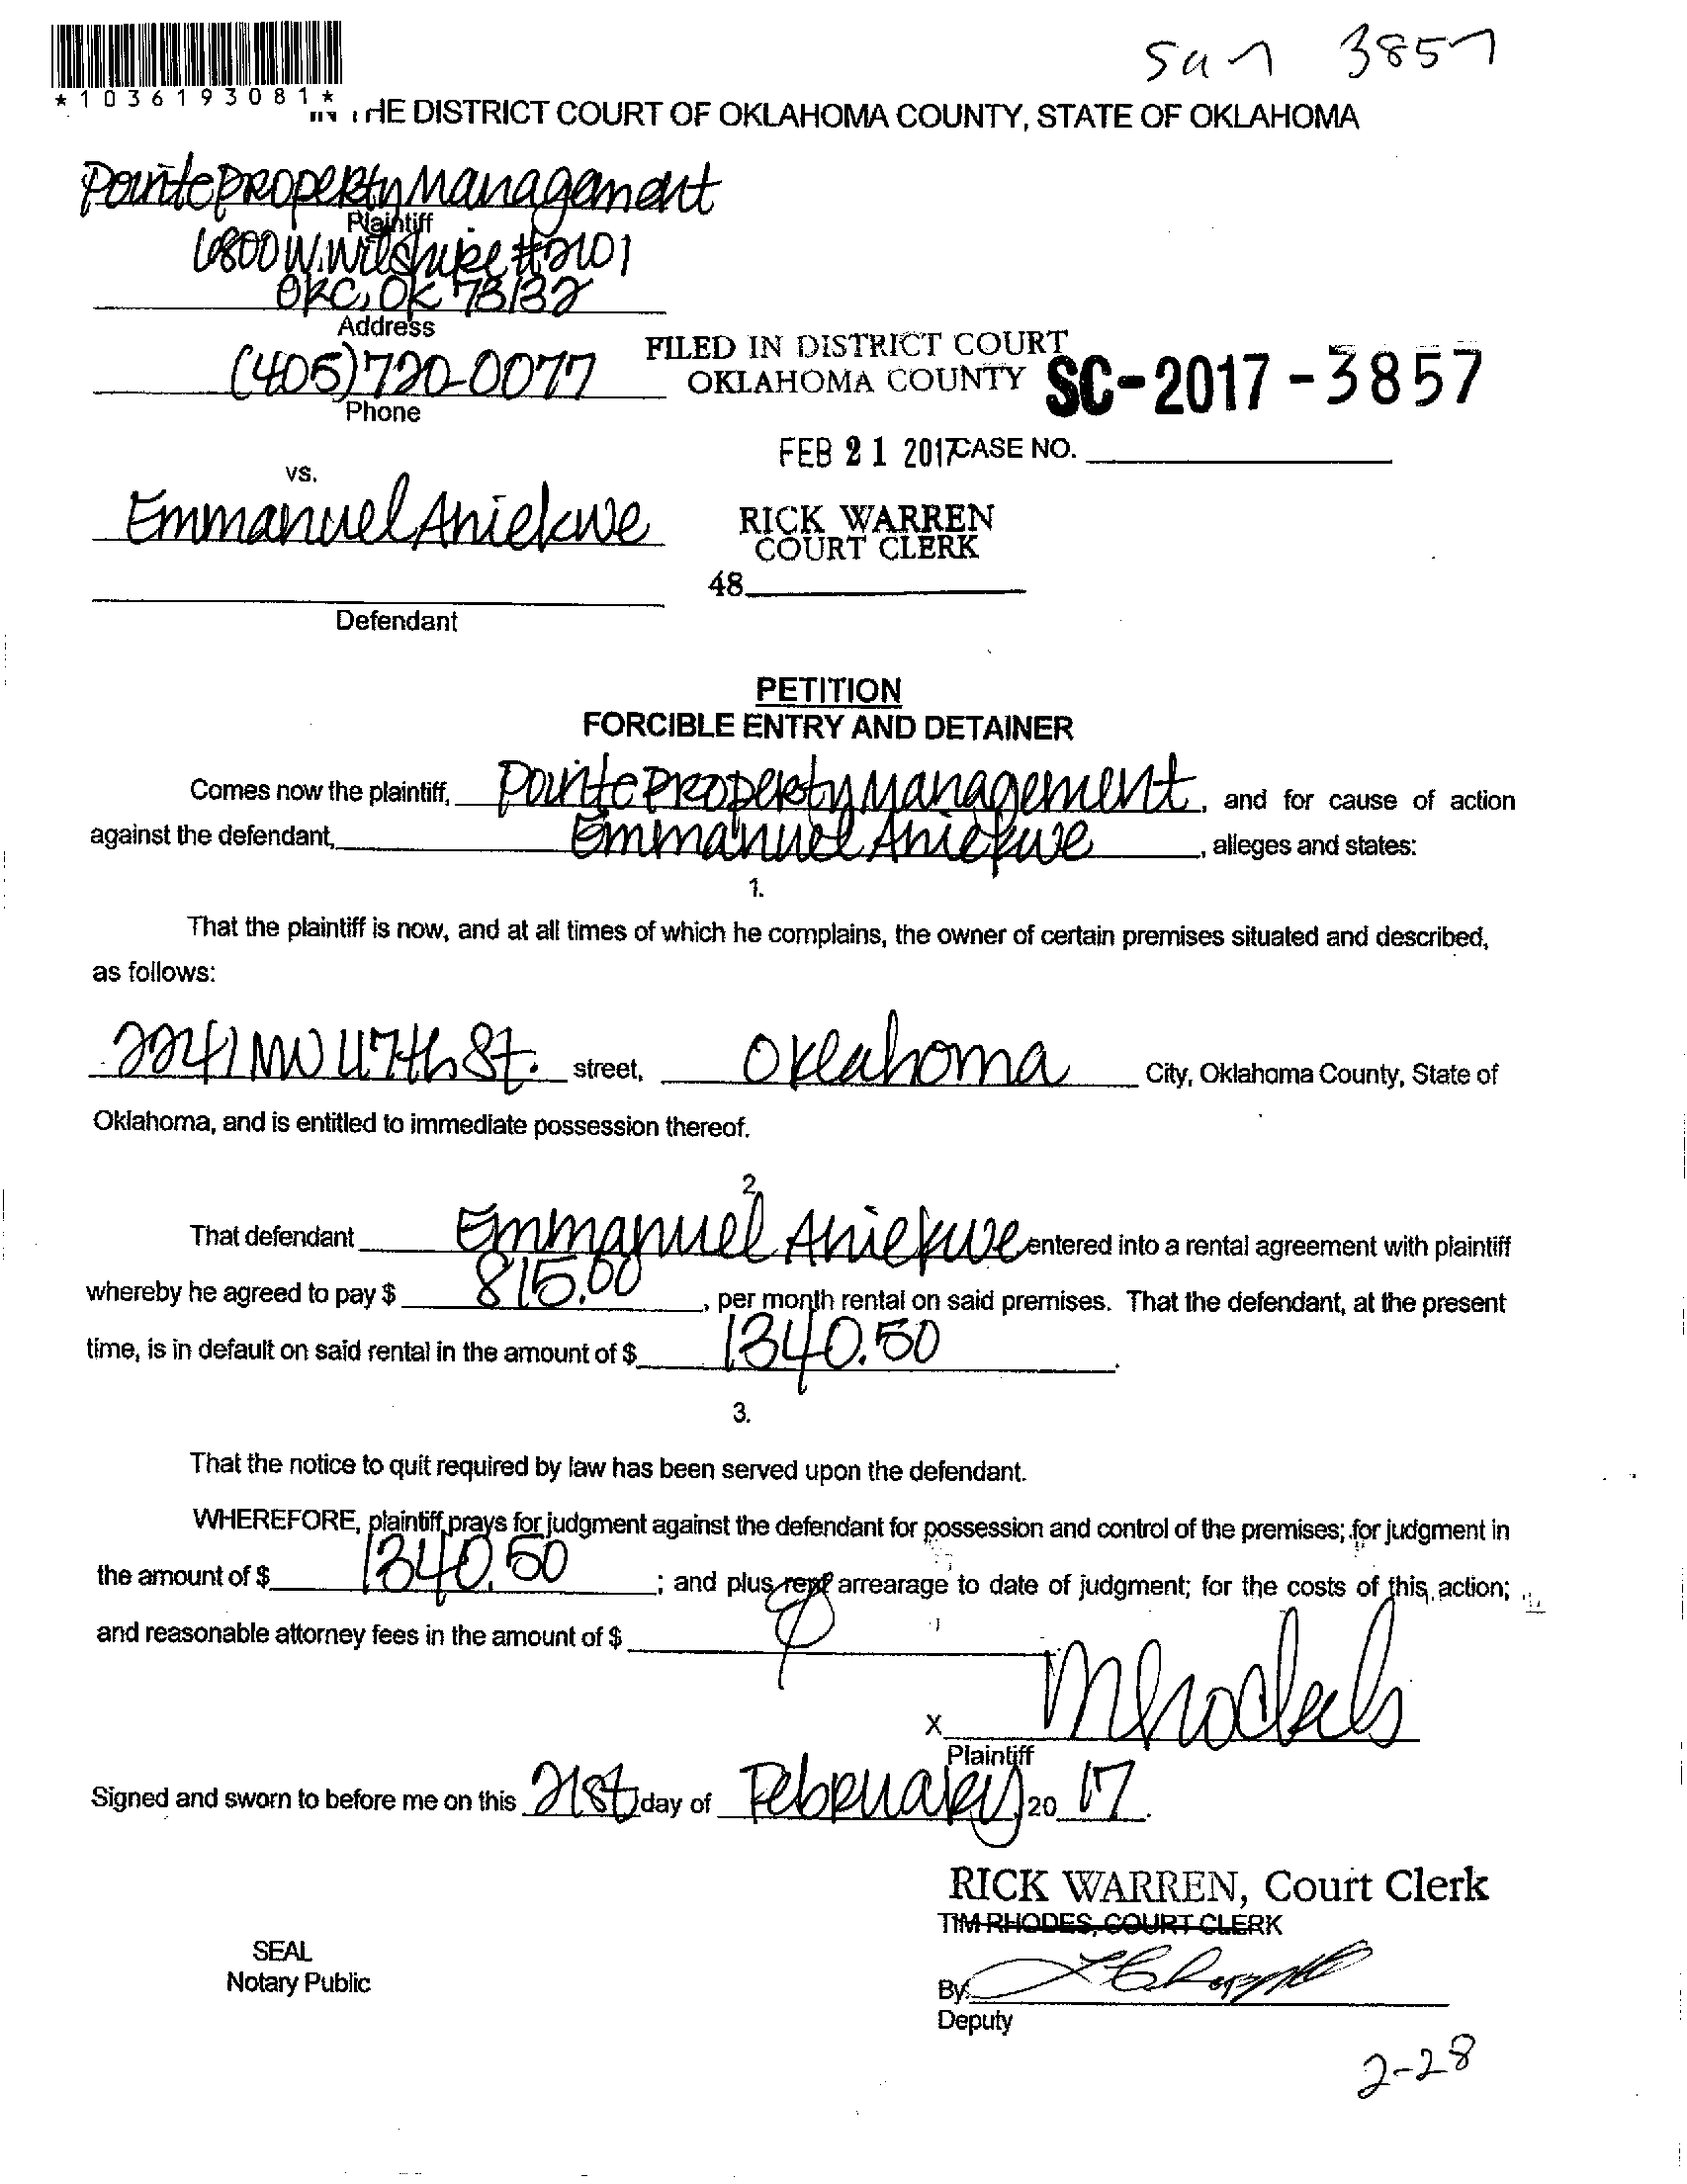 Sc17 3857
*1036193081*
THE DISTRICT COURT OF OKLAHOMA COUNTY, STATE OF OKLAHOMA
Pointe Property Management
Plaintiff
6800 W. Wilshire #2101
OKC, OK 73132
Address
(405) 720-0077
Phone
FILED IN DISTRICT COURT
OKLAHOMA COUNTY
SC-2017-3857
FEB 21 2017
CASE NO.
vs.
Emmanuel Aniekwe
RICK WARREN
COURT CLERK
48
Defendant
PETITION
FORCIBLE ENTRY AND DETAINER
Comes now the plaintiff, Pointe Property Management, and for cause of action
against the defendant, Emmanuel Aniekwe, alleges and states:
1.
That the plaintiff is now, and at all times of which he complains, the owner of certain premises situated and described,
as follows:
2241 NW 117th St. street, Oklahoma City, Oklahoma County, State of
Oklahoma, and is entitled to immediate possession thereof.
2.
That defendant Emmanuel Aniekwe entered into a rental agreement with plaintiff
whereby he agreed to pay $ 815.00, per month rental on said premises. That the defendant, at the present
time, is in default on said rental in the amount of $ 1340.50.
3.
That the notice to quit required by law has been served upon the defendant.
WHEREFORE, plaintiff prays for judgment against the defendant for possession and control of the premises; for judgment in
the amount of $ 1340.50; and plus rent arrearage to date of judgment; for the costs of this action;
and reasonable attorney fees in the amount of $
X
Plaintiff
Signed and sworn to before me on this 21st day of February, 20 17.
RICK WARREN, Court Clerk
TIM RHODES, COURT CLERK
SEAL
Notary Public
By:
Deputy
2-28